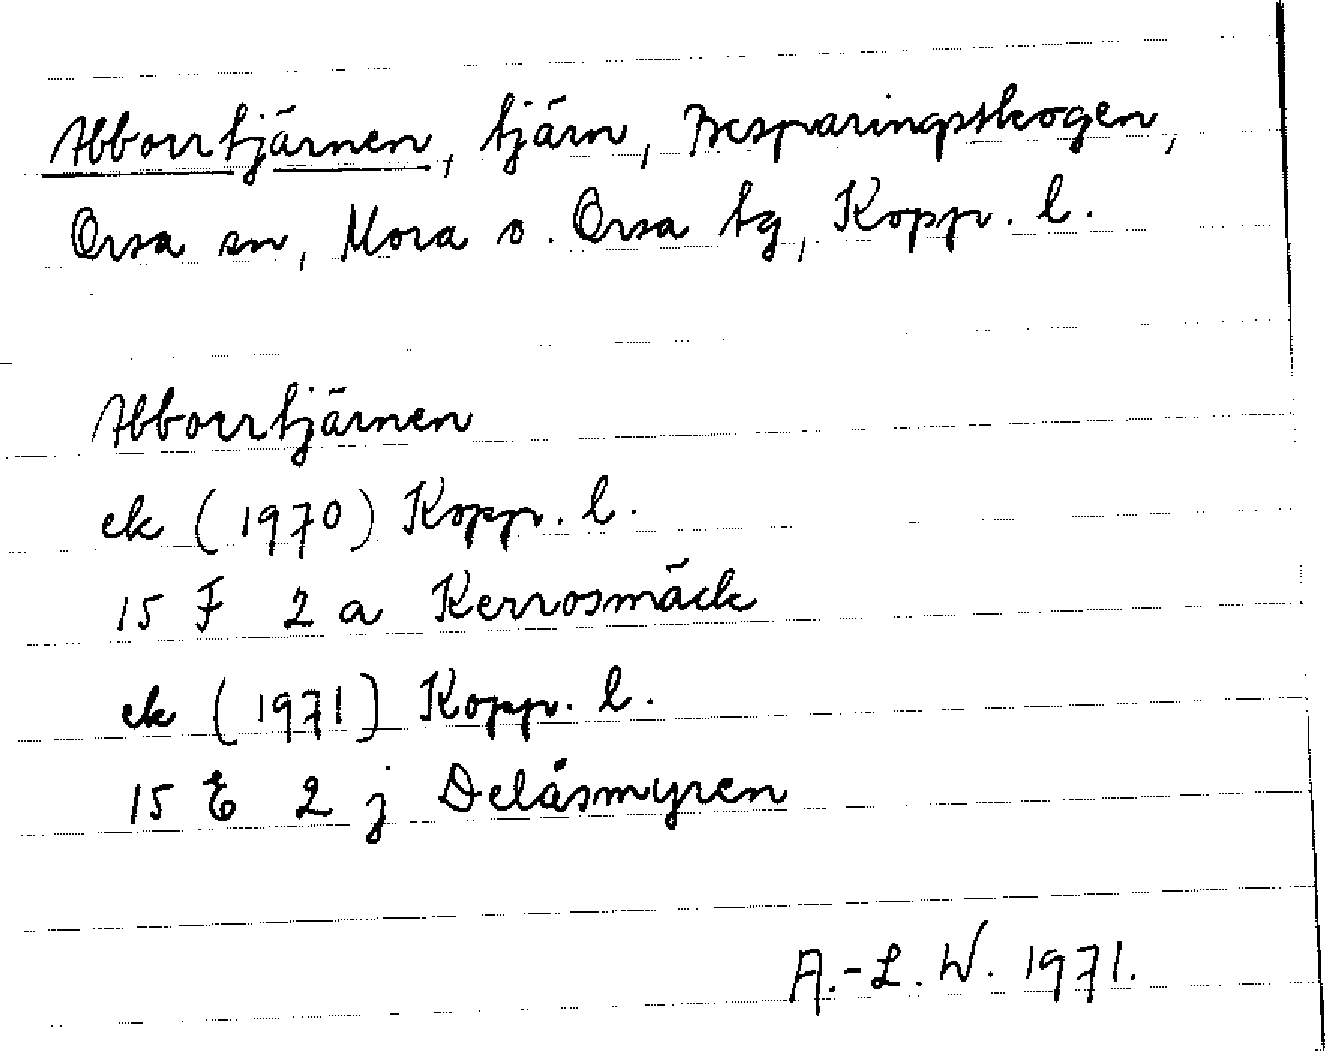 Abborrtjärnen, tjärn, Besparingsskogen,
Orsa sn, Mora o. Orsa tg, Kopp. l.
Abborrtjärnen
ek (1970) Kopp. l.
15 F 2 a Kerrosmäck
ek (1971) Kopp. l.
15 E 2 j Delåsmyren
A.-L. W. 1971.